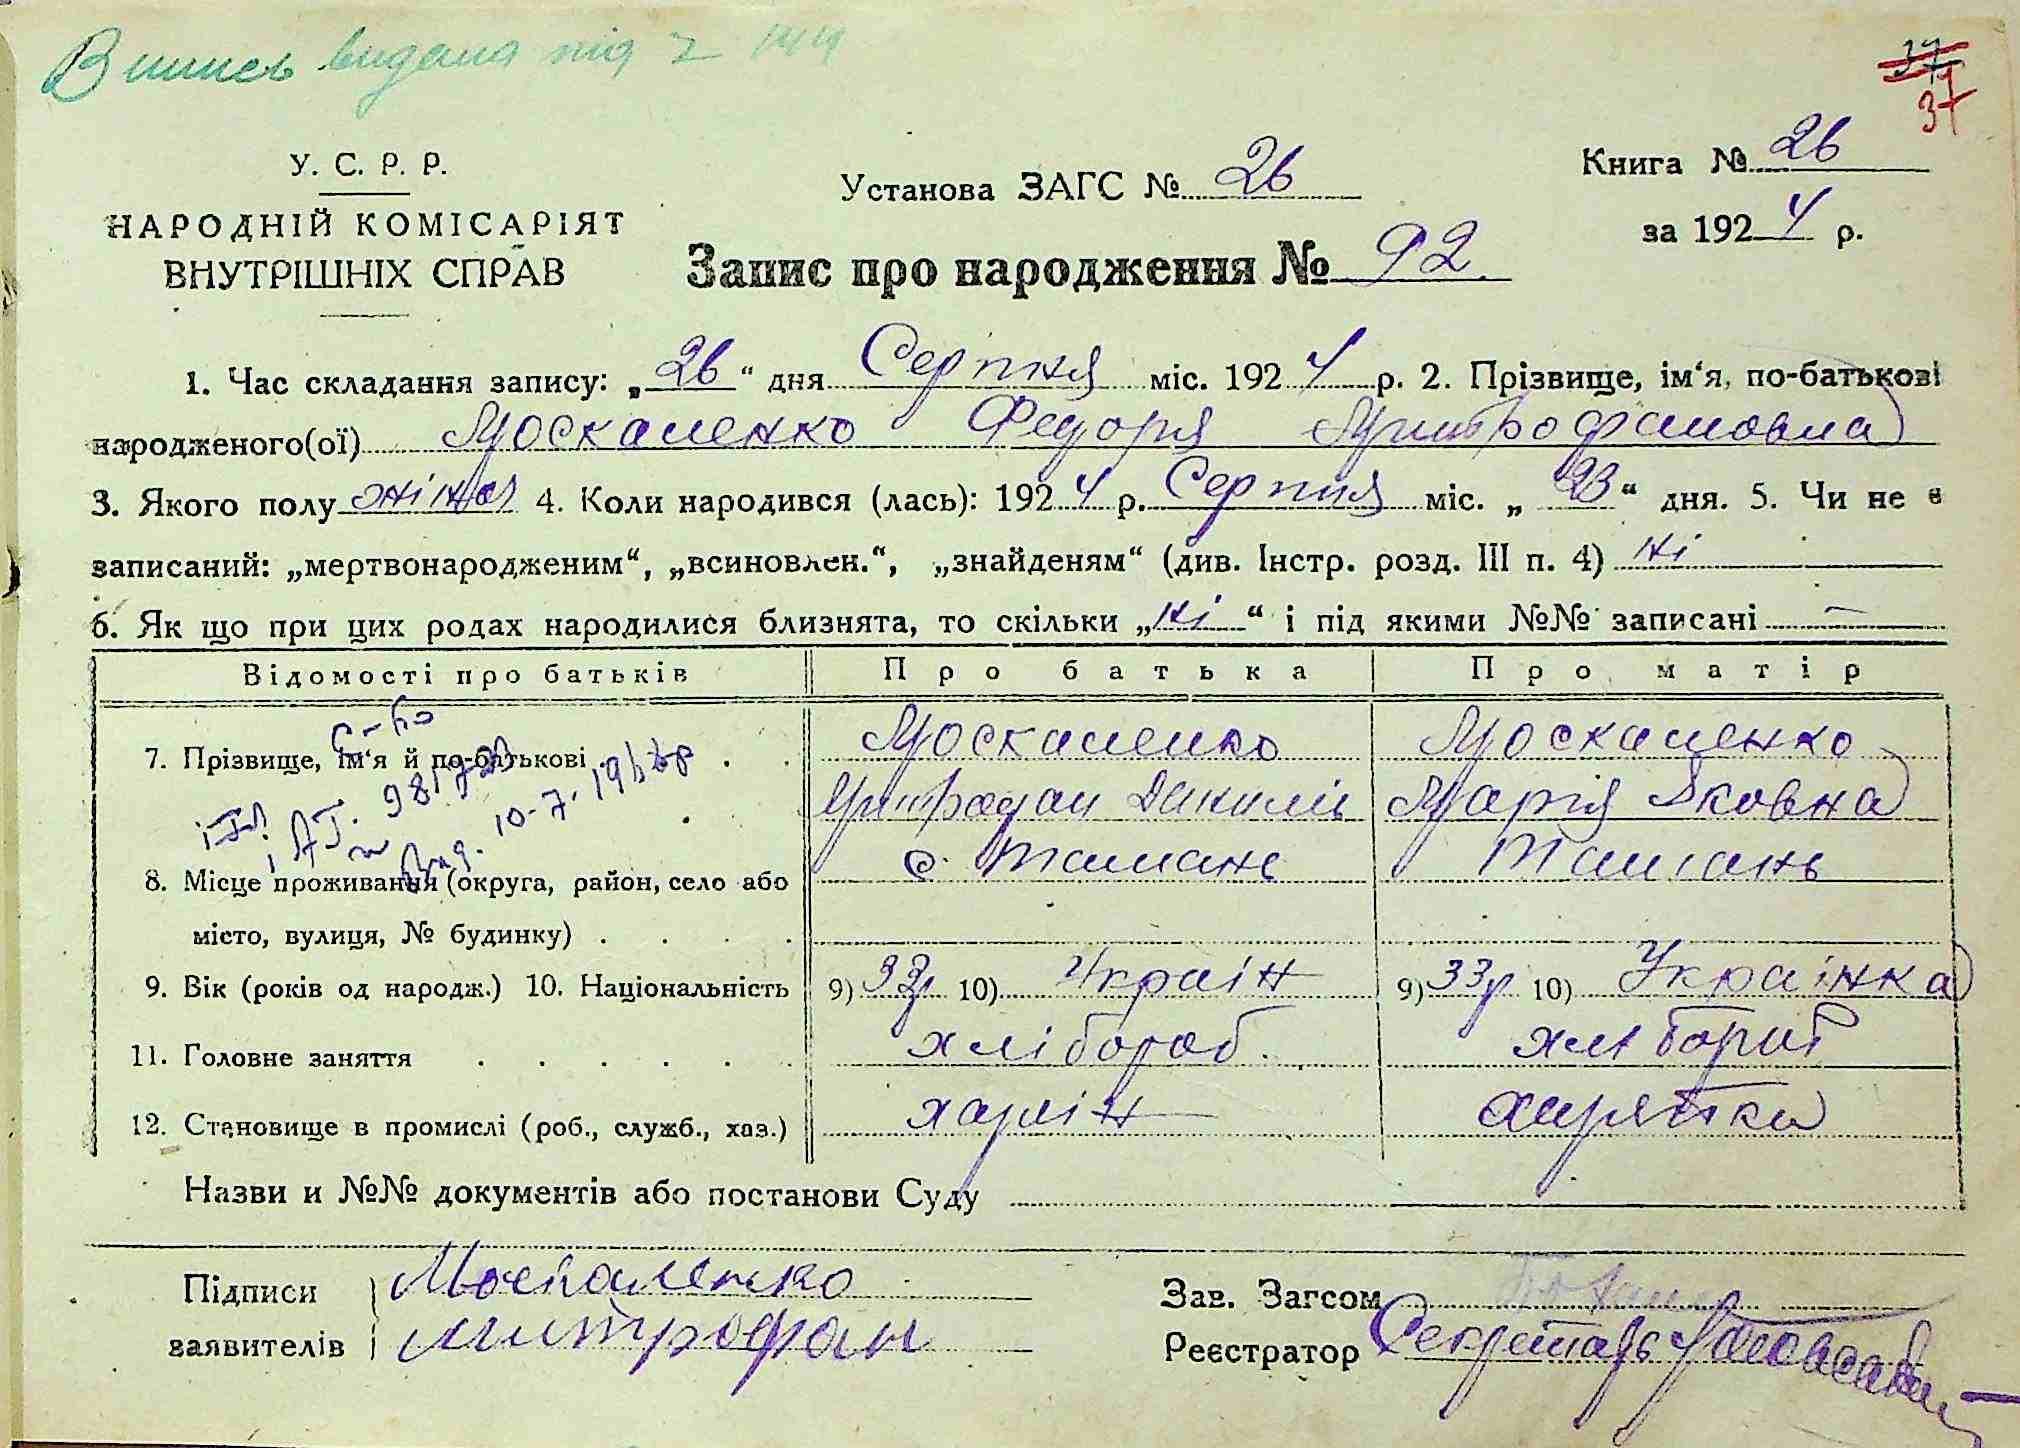 видана під
37
37
У. С. Р. Р.
НАРОДНІЙ КОМІСАРІЯТ
ВНУТРІШНІХ СПРАВ
Установа ЗАГС № 26
Книга № 26
за 1924 р.
Запис про народження № 92.
1. Час складання запису: „26“ дня Серпня міс. 1924 р. 2. Прізвище, ім‘я, по-батькові
народженого(ої) Москаленко Федоря Митрофановна
3. Якого полу жіноч 4. Коли народився (лась): 1924 р. Серпня міс. „23“ дня. 5. Чи не є
записаний: „мертвонародженим“, „всиновлен.“, „знайденям“ (див. Інстр. розд. III п. 4) ні
6. Як що при цих родах народилися близнята, то скільки „ні“ і під якими №№ записані —
Відомості про батьків Про батька Про матір
7. Прізвище, ім‘я й по-батькові Москаленко Москаленко
Митрофан Данилів Марія Яковна
с-во
10-7-
8. Місце проживання (округа, район, село або с. Ташань Ташань
місто, вулиця, № будинку)
9. Вік (років од народж.) 10. Національність 9) 33р 10) Україн 9) 33р 10) Українка
11. Головне заняття хлібороб. хлібороб
12. Становище в промислі (роб., служб., хаз.)
Назви и №№ документів або постанови Суду
Підписи Москаленко
заявителів Митрофан
Зав. Загсом
Реєстратор Секретарь